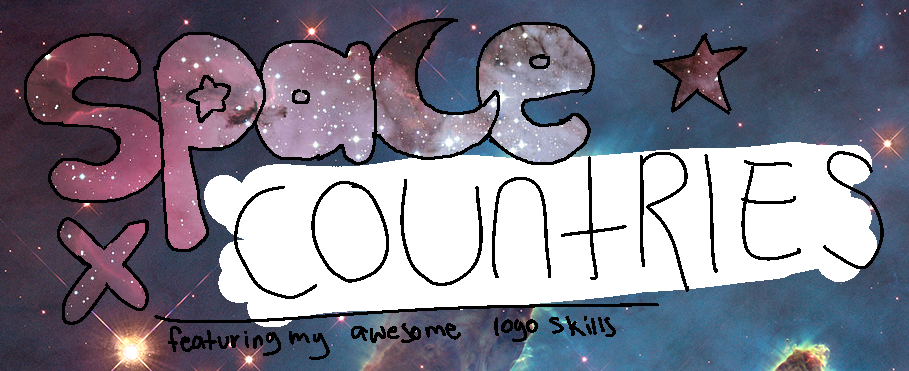 space
x COUnTRIES
featuring my awesome logo skills